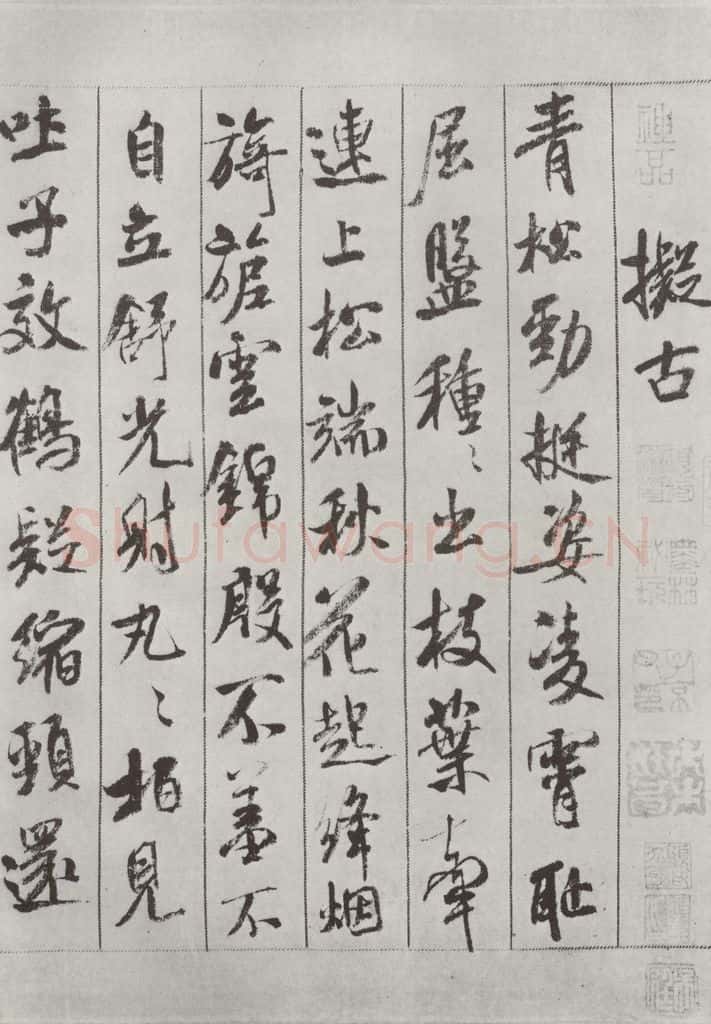 擬古
青松勁挺姿凌霄恥
屈盤種〻出枝葉牽
連上松端秋花起絳烟
旖旎雲錦殷不羞不
自立舒光射丸〻柏見
吐子效鶴疑縮頸還
Shufawang.CN